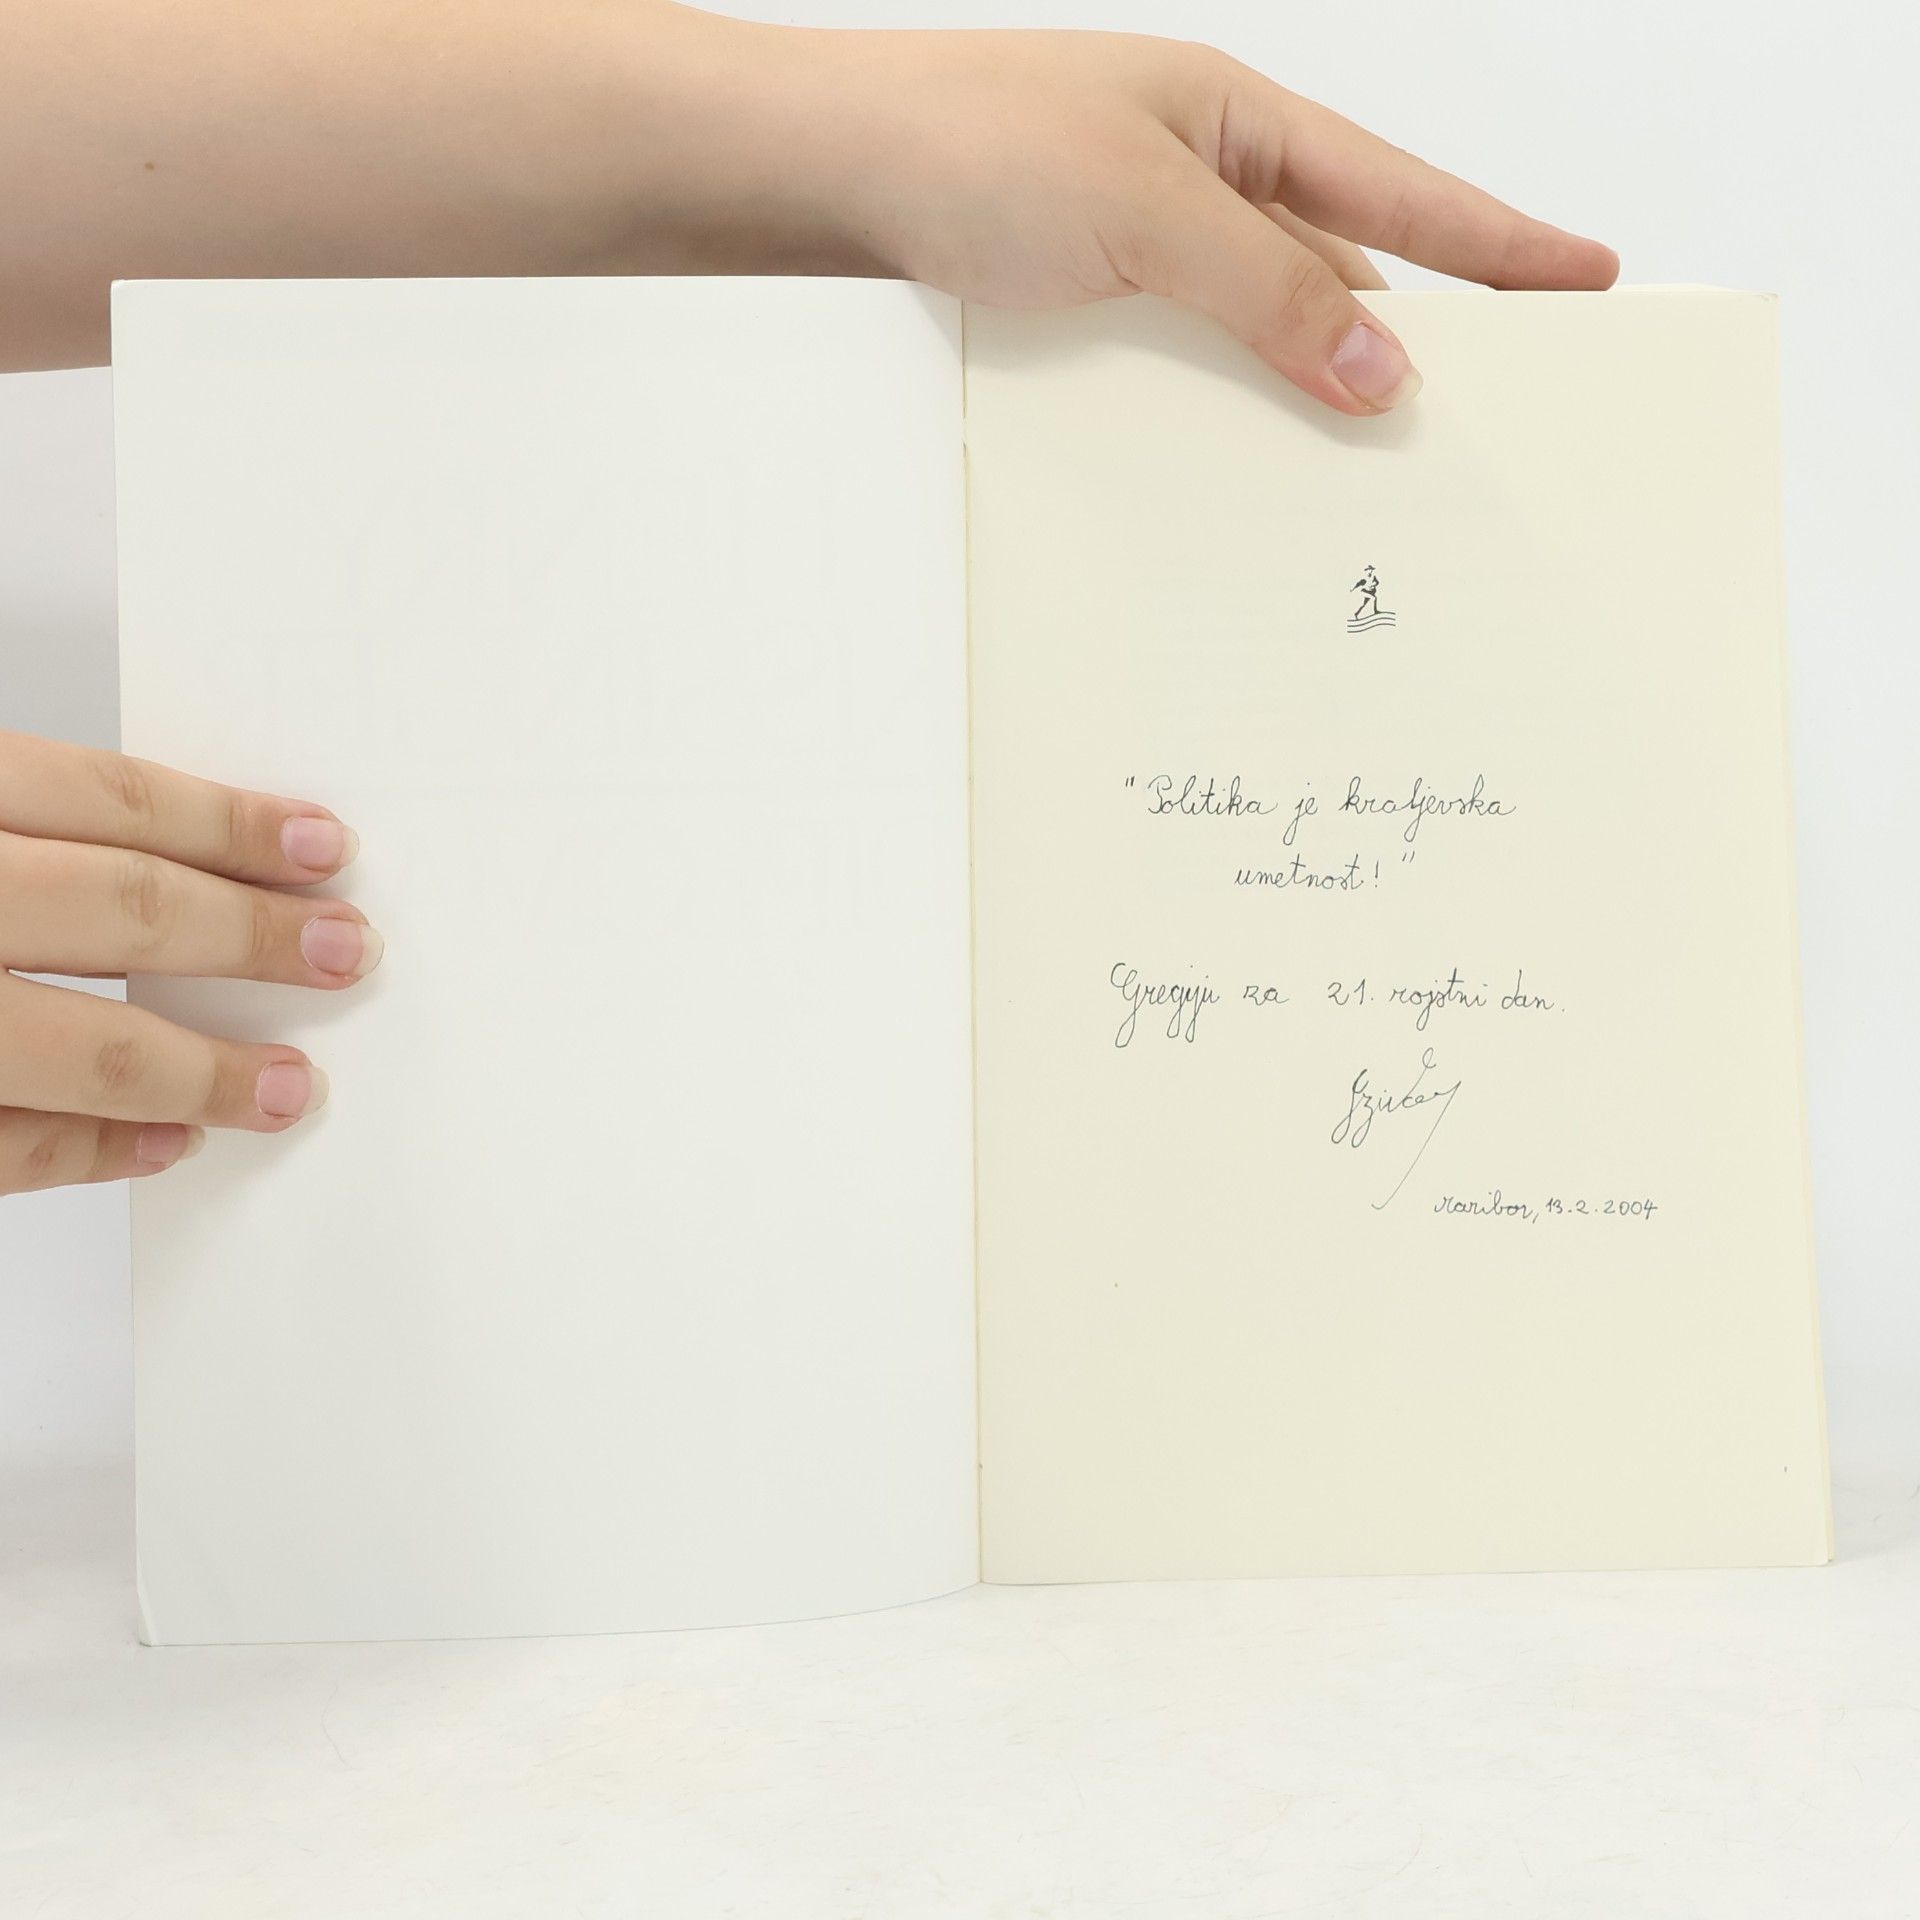 "Politika je kraljevska
umetnost!"
Gregiju za 21. rojstni dan.
Maribor, 13.2.2004